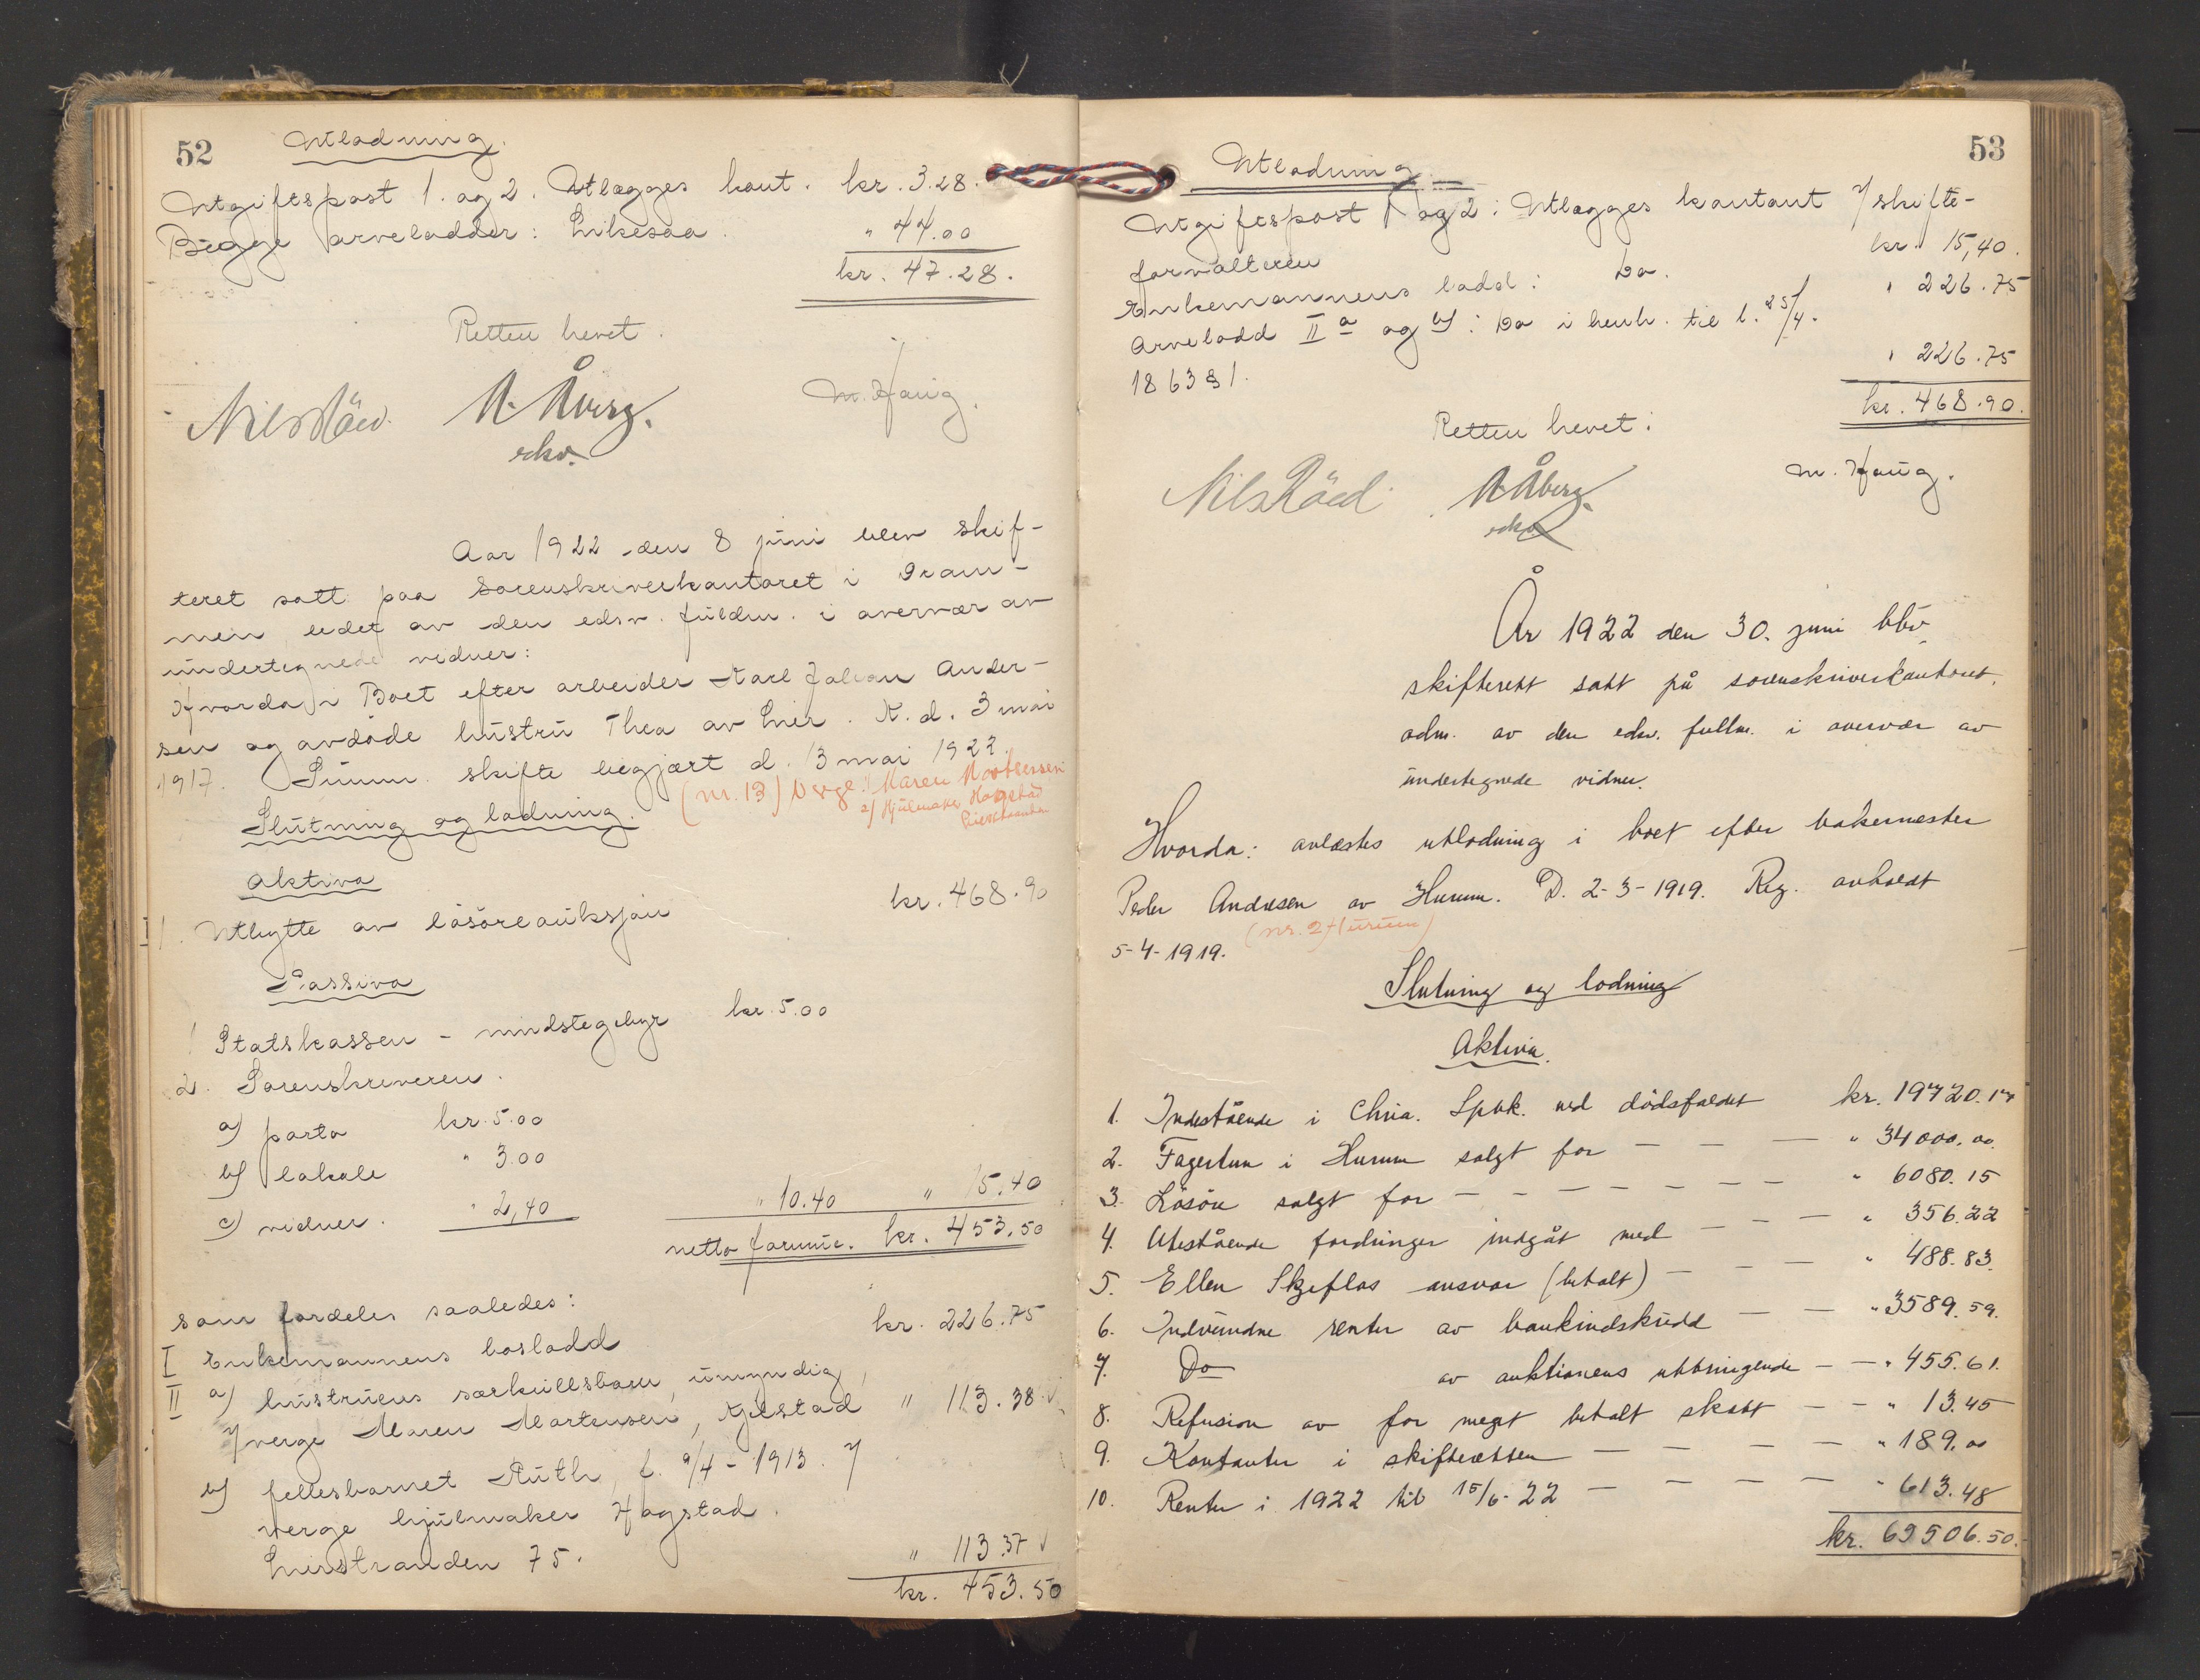 52
Utlodning.
Utgiftspost 1. og 2. Utlægges kont. kr. 3.28.
Begge arvelodder: Likesaa. " 44.00
kr. 47.28.
Retten hevet.
Nils Röed. A. Åberg. M. Haug.
edsv.
Aar 1922 den 8 juni blev skif-
teret satt paa Sorenskriverkontoret i Dram-
men ledet av den edsv. fuldm. i overvær av
undertegnede vidner:
Hvorda i Boet efter arbeider Karl Johan Ander-
sen og avdøde hustru Thea av Lier. K. d. 3 mai
1917. Summ. skifte begjært d. 13 mai 1922.
(nr. 13) Verge: 1/ Maren Mortensen
2/ Hjulmaker Hagstad
Lierstranden
Slutning og lodning.
Aktiva
I 1. Utbytte av løsøreauksjon kr. 468.90
Passiva
1 Statskassen - mindstegebyr kr. 5.00
2. Sorenskriveren.
a) porto kr. 5.00
b) lokale " 3.00
c) vidner. " 2,40 " 10.40 " 15.40
netto formue. kr. 453.50
som fordeles saaledes:
I Enkemannens boslodd kr. 226.75
II a) hustruens særkullsbarn, umyndig,
y/verge Maren Mortensen, Kjelstad " 113.38
b) fellesbarnet Ruth, f. 9/4 - 1913. y/
verge hjulmaker Hagstad.
Lierstranden 75. " 113.37
kr. 453.50
53
Utlodning
Utgiftspost 1 og 2: Utlægges kontant y/skifte-
forvalteren kr. 15,40.
Enkemannens lodd: Do. " 226.75
Arvelodd II a og b): Do i henh. til l. 25/4.
1863 § 1. " 226.75
kr. 468.90.
Retten hevet:
Nils Röed A. Åberg. M. Haug.
edsv.
År 1922 den 30. juni blev
skifterett satt på sorenskriverkontoret,
adm. av den edsv. fullm. i overvær av
undertegnede vidner.
Hvorda: avlæstes utlodning i boet efter bakermester
Peder Andresen av Hurum. D. 2-3-1919. Reg. avholdt
(nr. 2 Hurum)
5-4-1919.
Slutning og lodning
Aktiva.
1. Indestående i Chria. Spbk. ved dödsfaldet kr. 19720.17
2. Fagertun i Hurum solgt for — — — " 34000.00.
3. Løsøre solgt for — — — — — — — " 6080.15
4. Utestående fordringer indgåt med — — — " 356.22
5. Ellen Skjeflos ansvar (betalt) — — — " 488.83.
6. Indvundne renter av bankindskudd — — " 3589.59.
7. Do av auktionens utbringende — — " 455.61.
8. Refusion av for meget betalt skatt — — " 13.45
9. Kontanter i skifteretten — — — — " 189.00
10. Renter i 1922 til 15/6-22 — — — — " 613.48
kr. 69506.50.